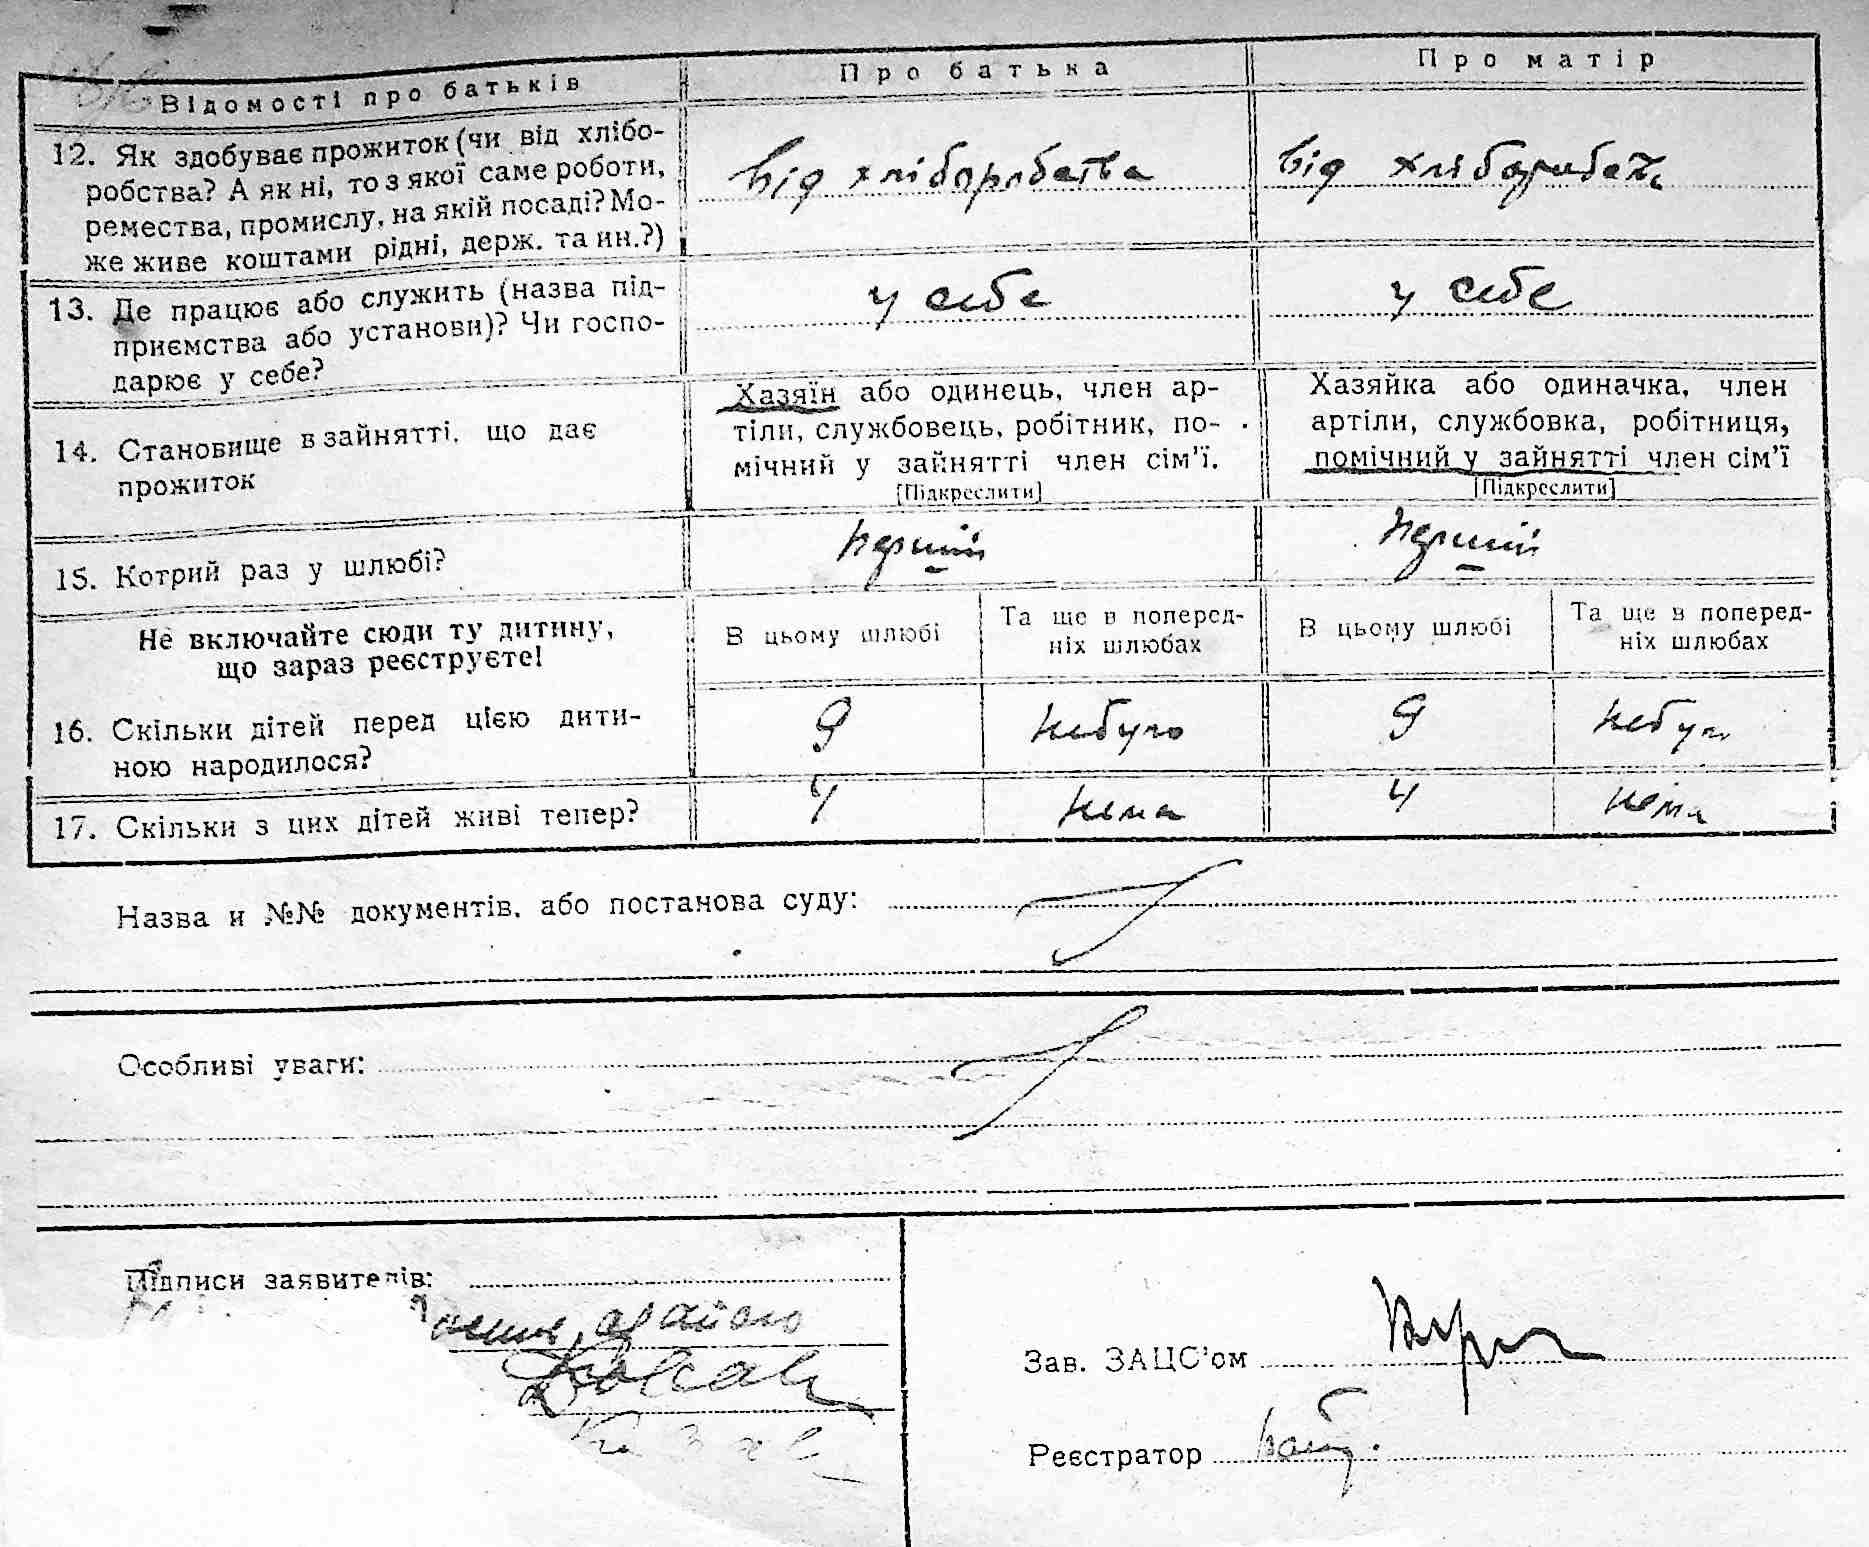 Відомості про батьків
Про батька
Про матір
12. Як здобуває прожиток (чи від хлібо-
робства? А як ні, то з якої саме роботи,
ремества, промислу, на якій посаді? Мо-
же живе коштами рідні, держ. та ин.?)
від хліборобства
від хліборобства
13. Де працює або служить (назва під-
приємства або установи)? Чи госпо-
дарює у себе?
у себе
у себе
14. Становище в зайнятті, що дає
прожиток
Хазяїн або одинець, член ар-
тіли, службовець, робітник, по-
мічний у зайнятті член сім'ї.
[Підкреслити]
Хазяйка або одиначка, член
артіли, службовка, робітниця,
помічний у зайнятті член сім'ї
[Підкреслити]
15. Котрий раз у шлюбі?
перший
перший
Не включайте сюди ту дитину,
що зараз реєструєте!
В цьому шлюбі
Та ще в поперед-
ніх шлюбах
В цьому шлюбі
Та ще в поперед-
ніх шлюбах
16. Скільки дітей перед цією дити-
ною народилося?
9
небуло
9
небуло
17. Скільки з цих дітей живі тепер?
4
нема
4
нема
Назва и №№ документів, або постанова суду:
Особливі уваги:
Підписи заявителів:
Зав. ЗАЦС'ом
Реєстратор